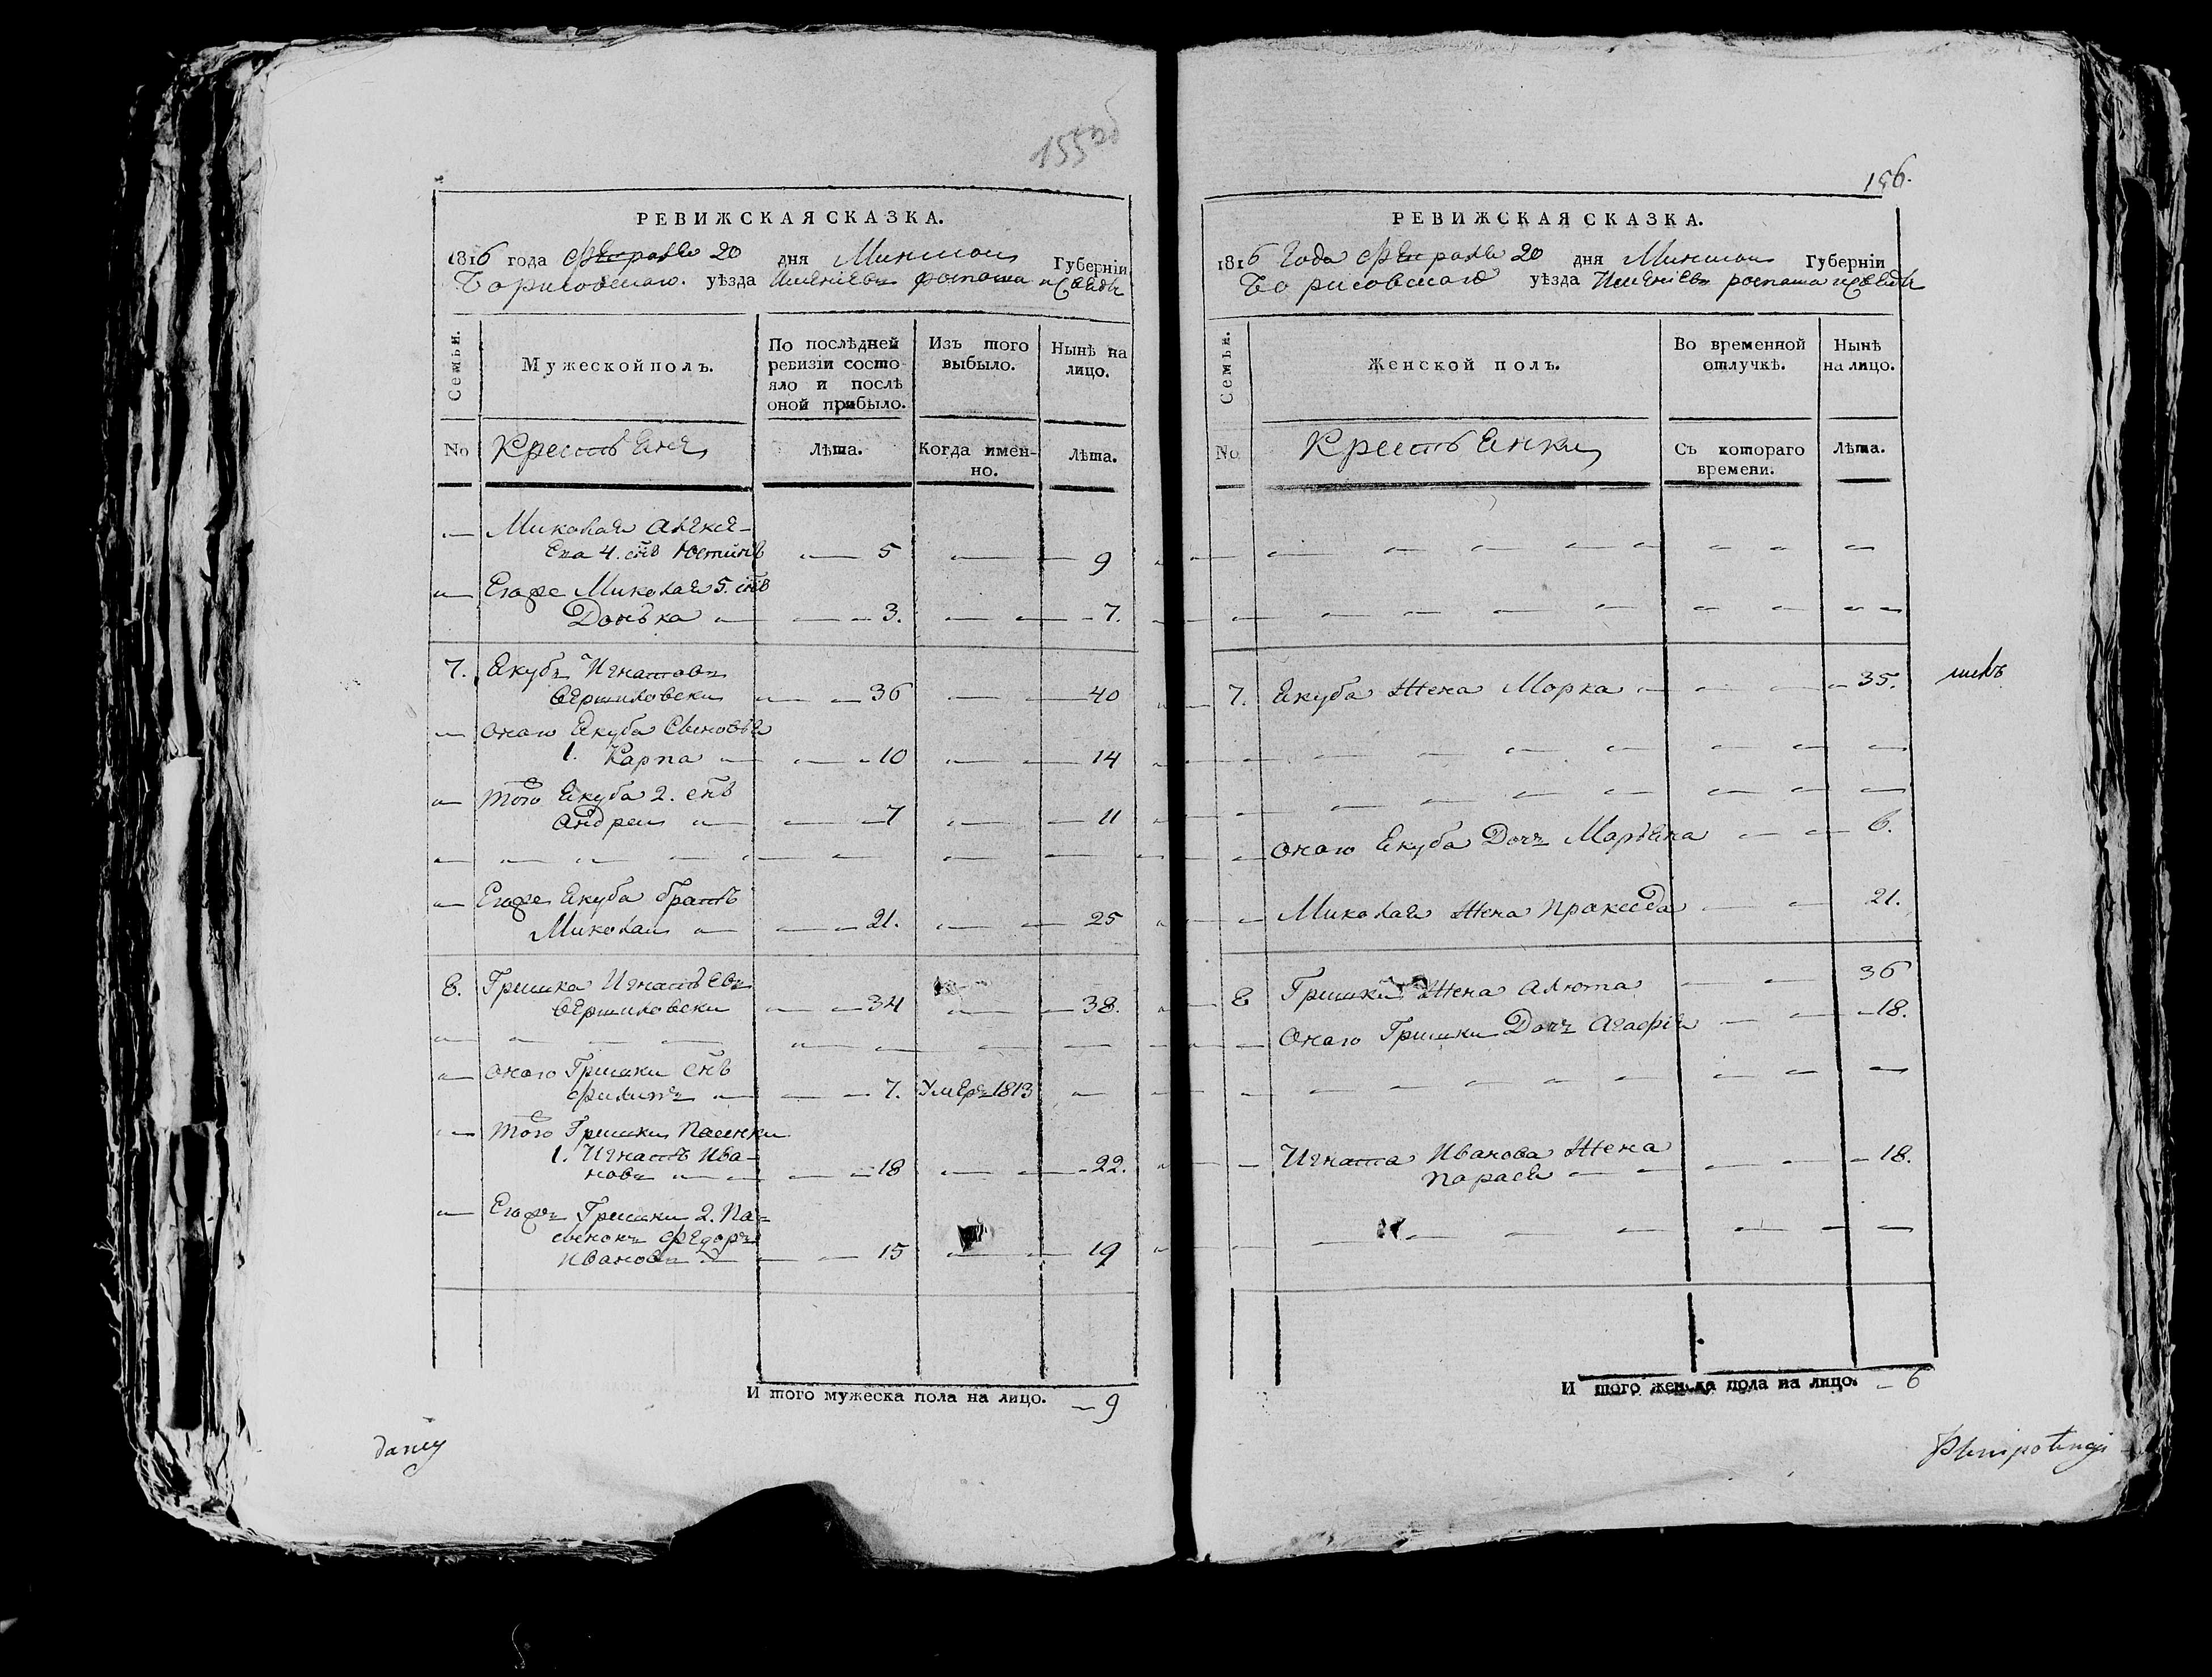 155 об
РЕВИЖСКАЯ СКАЗКА.
1816 года февраля 20 дня Минской Губерніи
Борисовскаго. уѣзда Имѣніевъ
Семьи.
Мужеской полъ.
По послѣдней ревизіи состояло и послѣ оной прибыло.
Изъ того выбыло.
Нынѣ на лицо.
No
Крестьяне
Лѣта.
Когда именно.
Лѣта.
— Миколая Алексе-
ева 4. снъ Юстинъ — 5 — 9
— Егоже Миколая 5. снъ
Донька — 3. — 7.
7. Якубъ Игнатовъ
Вершиловски — 36 — 40
— оного Якуба Сыновья
1. Карпа — 10 — 14
— того Якуба 2. снъ
Андреи — 7 — 11
— Егоже Якуба братъ
Миколаи — 21. — 25
8. Гришка Игнатьевъ
Вершиловски — 34 — 38.
— оного Гришки снъ
Филипъ — 7. Умеръ 1813 —
— того Гришки Пасенки
1. Игнатъ Ива-
новъ — 18 — 22.
— Егожъ Гришки 2. Па-
сенокъ Федоръ
Ивановъ — 15 — 19
И того мужеска пола на лицо. — 9
dany
156.
РЕВИЖСКАЯ СКАЗКА.
1816 Года Февраля 20 дня Минской Губерніи
Борисовскаго уѣзда Имѣніевъ
Семьи.
Женской полъ.
Во временной отлучкѣ.
Нынѣ на лицо.
No
Крестьянки
Съ котораго времени.
Лѣта.
7. Якуба ЖенаМорка — 35.
оного Якуба Дочь Марьяна — 6.
— Миколая Жена Пракседа — 21.
8 Гришки Жена Алюта — 36
— оного Гришки Дочь Агафія — 18.
— Игната Иванова Жена
Парася — 18.
И того женска пола на лицо. — 6
Plenipotencji